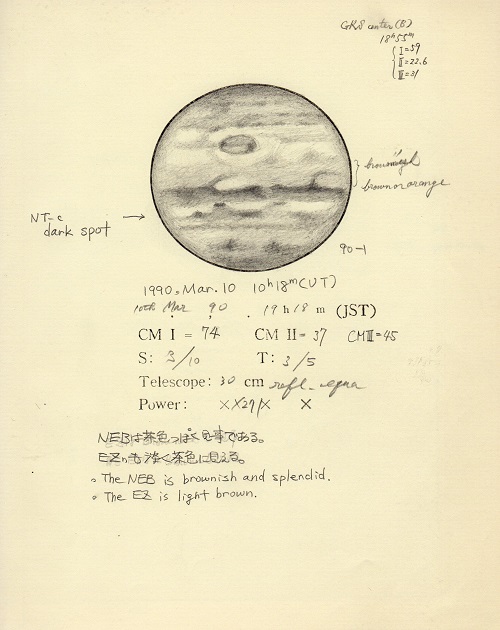 GRS center (B)
18h55m
I=59
II=22.6
III=31
brownish
brown or orange
NT-c
dark spot
90-1
1990. Mar. 10 10h18m (UT)
10th Mar 90 . 19h18m (JST)
CM I = 74 CM II = 37 CMIII=45
S: 3/10 T: 3/5
Telescope: 30 cm refl.
Power: ×
NEBは茶色っぽく見事である。
EZも淡く茶色に見える。
The NEB is brownish and splendid.
The EZ is light brown.